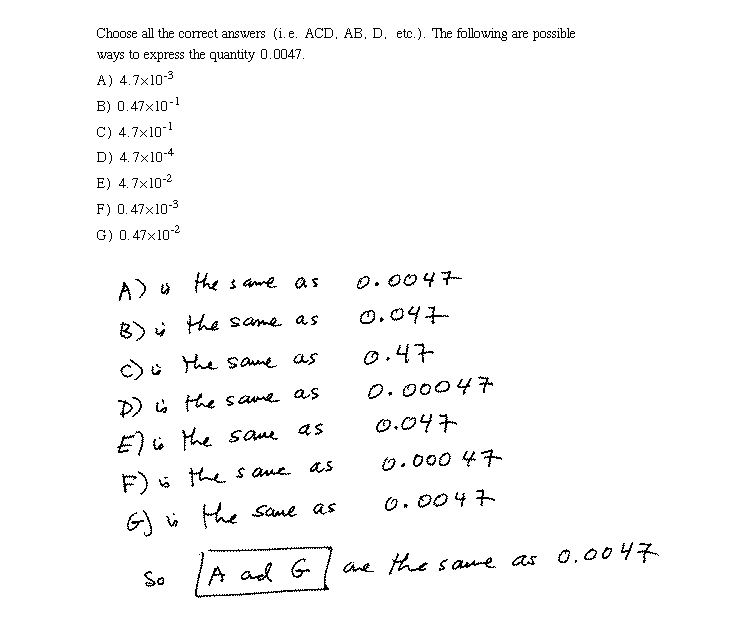 Choose all the correct answers (i.e. ACD, AB, D, etc.). The following are possible
ways to express the quantity 0.0047.
A) 4.7×10⁻³
B) 0.47×10⁻¹
C) 4.7×10⁻¹
D) 4.7×10⁻⁴
E) 4.7×10⁻²
F) 0.47×10⁻³
G) 0.47×10⁻²
A) is the same as 0.0047
B) is the same as 0.047
C) is the same as 0.47
D) is the same as 0.00047
E) is the same as 0.047
F) is the same as 0.00047
G) is the same as 0.0047
So A and G are the same as 0.0047